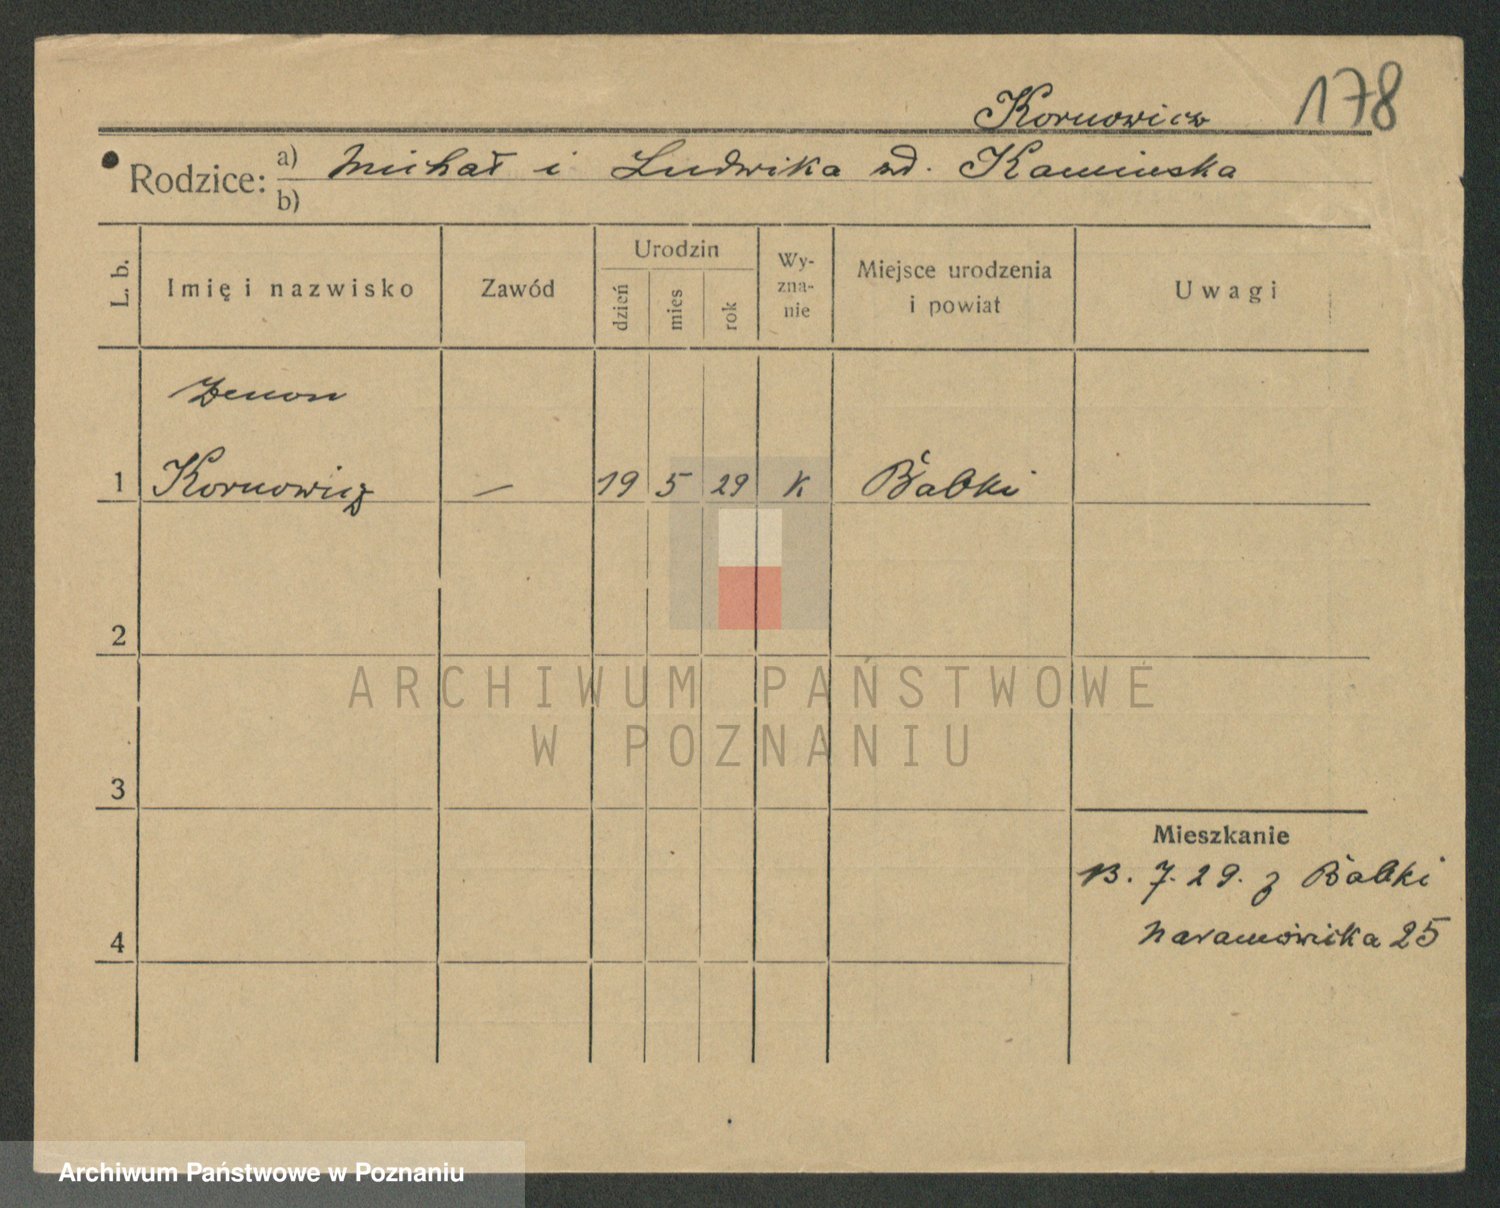 Kornowicz 178
Rodzice: a) Michał i Ludwika zd. Kaminska
b)
L. b. Imię i nazwisko Zawód Urodzin dzień mies rok Wy-zna-nie Miejsce urodzenia i powiat Uwagi
Zenon
1 Kornowicz — 19 5 29 K Babki
2
ARCHIWUM PAŃSTWOWE
W POZNANIU
3
Mieszkanie
13. 7. 29. z Babki
Naramowicka 25
4
Archiwum Państwowe w Poznaniu